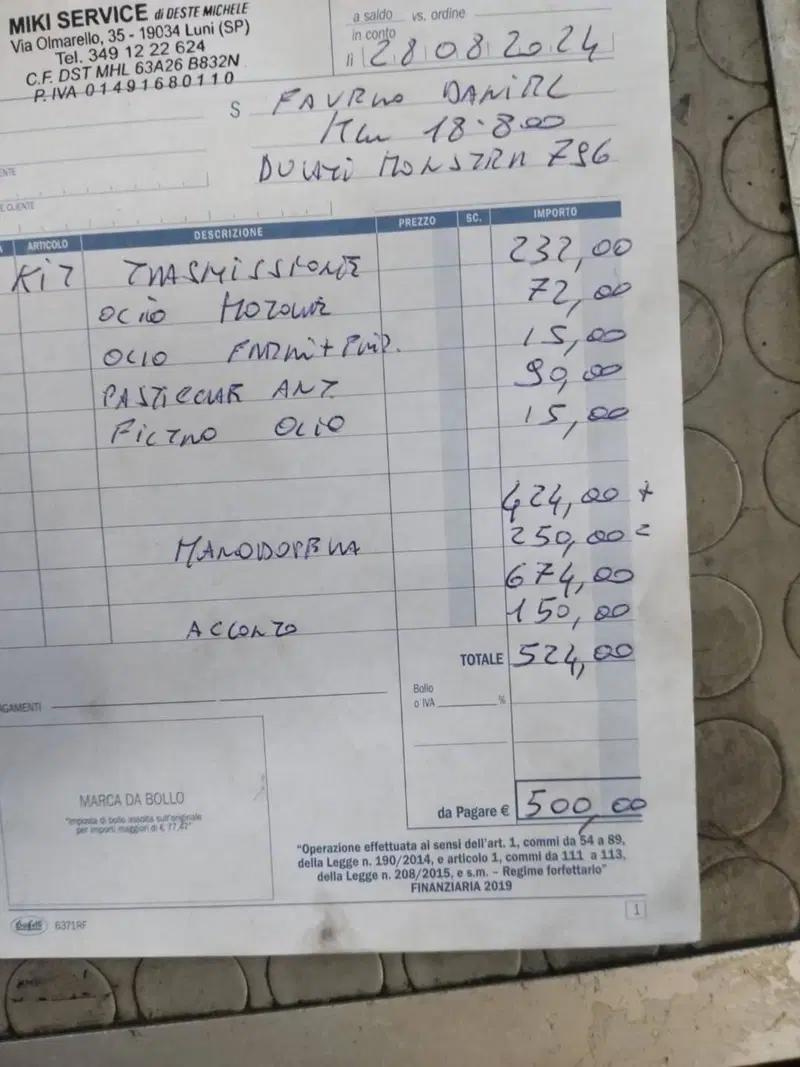 MIKI SERVICE di DESTE MICHELE
Via Olmarello, 35 - 19034 Luni (SP)
Tel. 349 12 22 624
C.F. DST MHL 63A26 B832N
P. IVA 01491680110
a saldo vs. ordine
in conto
lì 28 08 2024
S
DANIEL
Km 18.800
DUCATI MONSTER 796
ENTE
E CLIENTE
ARTICOLO DESCRIZIONE PREZZO SC. IMPORTO
KIT TRASMISSIONE 232,00
OLIO MOTORE 72,00
OLIO FRENI + 15,00
PASTIGLIE ANT 90,00
FILTRO OLIO 15,00
424,00 +
MANODOPERA 250,00 =
674,00
ACCONTO 150,00
TOTALE 524,00
Bollo
o IVA %
AGAMENTI
MARCA DA BOLLO
"imposta di bollo assolta sull'originale
per importi maggiori di € 77,47"
da Pagare € 500,00
"Operazione effettuata ai sensi dell'art. 1, commi da 54 a 89,
della Legge n. 190/2014, e articolo 1, commi da 111 a 113,
della Legge n. 208/2015, e s.m. – Regime forfettario"
FINANZIARIA 2019
Buffetti 6371RF
1